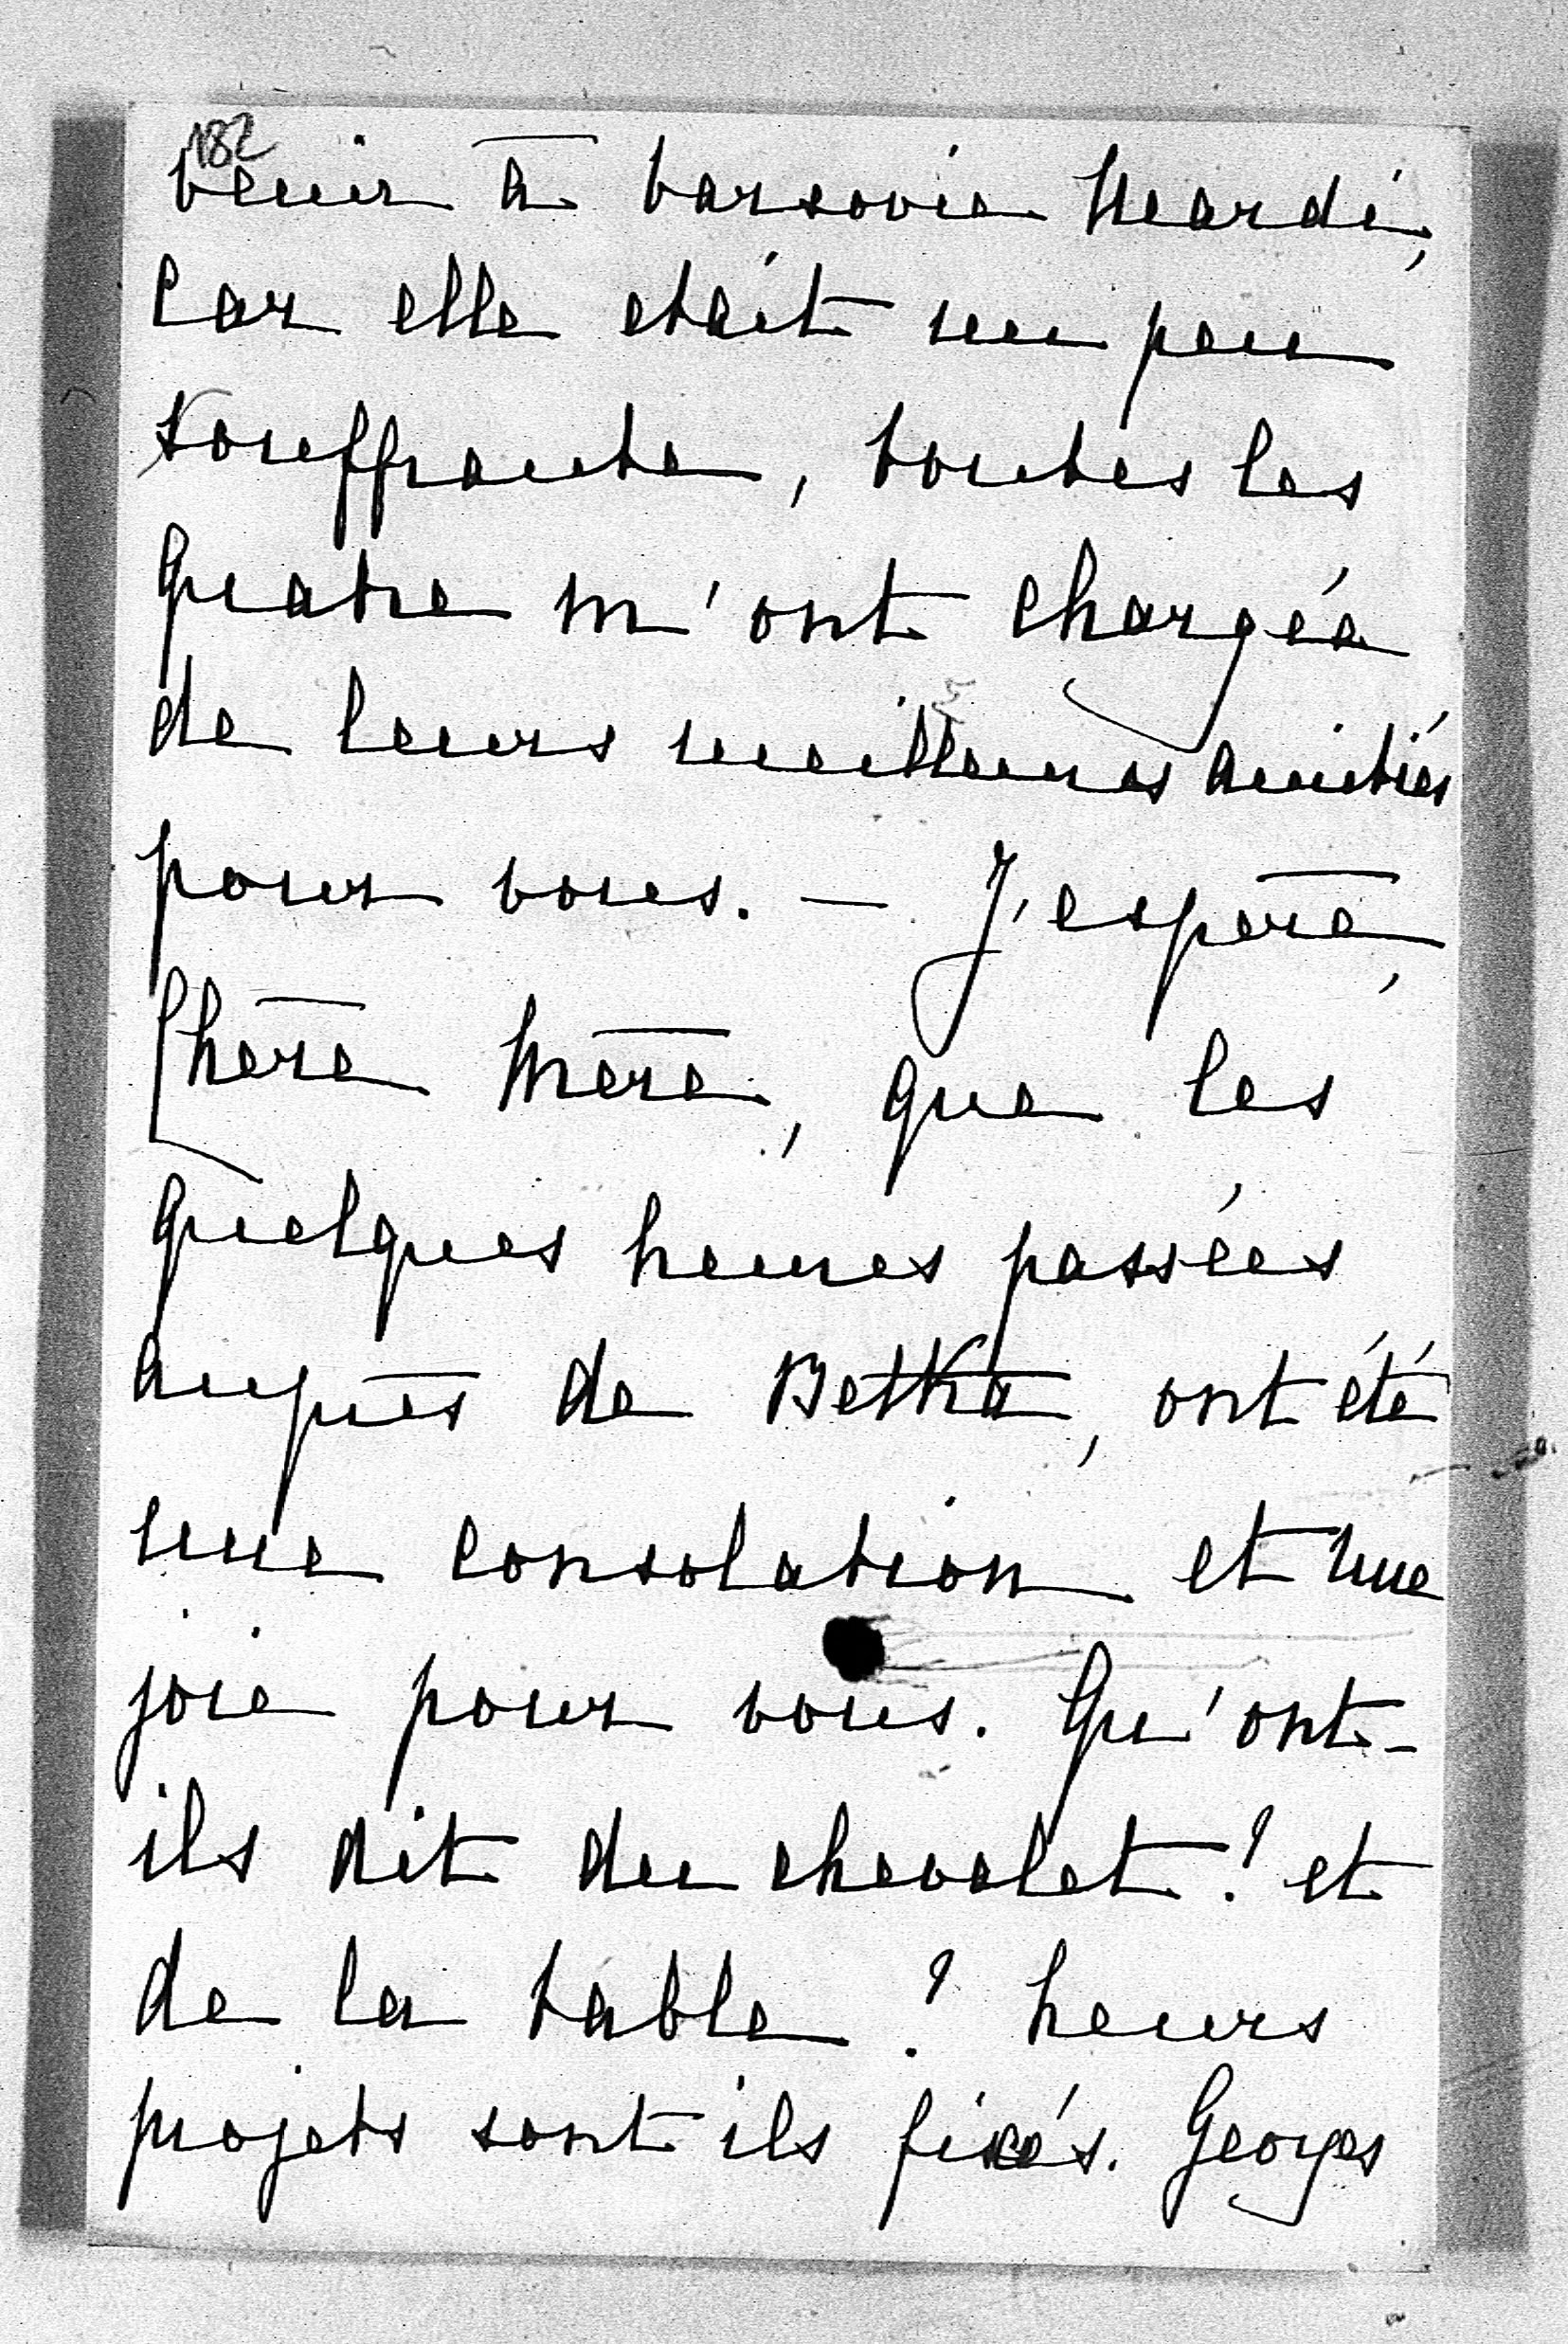 182
venir à Varsovie Mardi,
car elle était un peu
souffrante, toutes les
quatre m'ont chargée
de leurs meilleures amitiés
pour vous. — J'espère,
Chère Mère, que les
quelques heures passées
auprès de Betka, ont été
une consolation et une
joie pour vous. Qu'ont-
ils dit du chevalet? et
de la table? Leurs
projets sont ils fixés. Georges